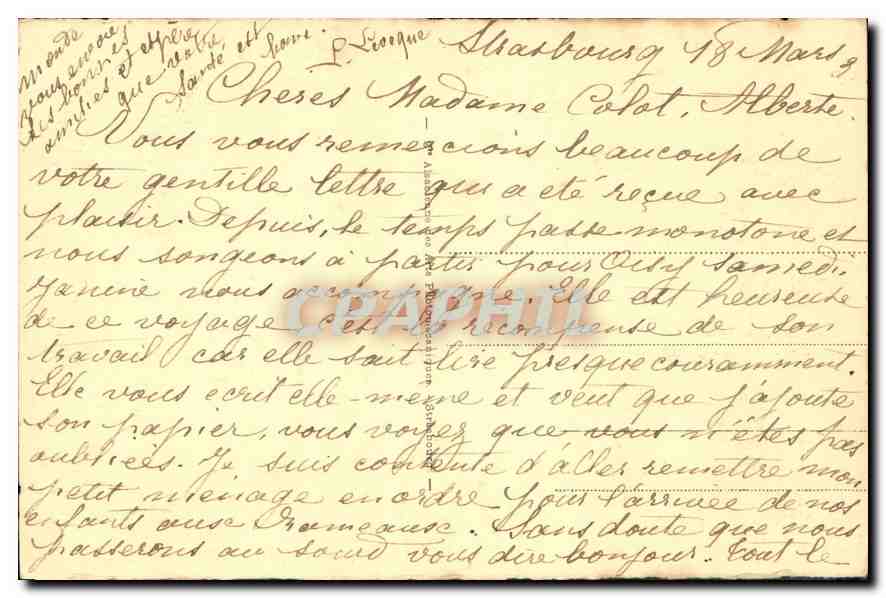 Strasbourg 18 Mars
Cheres Madame Colot, Alberte.
Vous vous remercions beaucoup de
votre gentille lettre qui a été reçue avec
plaisir. Depuis, le temps passe monotone et
nous songeons à partir pour Oisy samedi.
Janine nous accompagne. Elle est heureuse
de ce voyage, c'est la recompense de son
travail car elle sait lire presque couramment.
Elle vous ecrit elle-meme et veut que j'ajoute
son papier, vous voyez que vous n'étes pas
oubliées. Je suis contente d'aller remettre mon
petit ménage en ordre pour l'arrivée de nos
enfants aux Rameaux. Sans doute que nous
passerons au sourd vous dire bonjour. Tout le
monde
vous envoie
ses bonnes
amitiés et espère
que votre
santé est bonne.
P. Lecoque
CPAPHIL